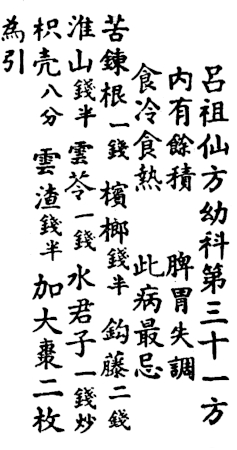 呂祖仙方幼科第三十一方
內有餘積　脾胃失調
食冷食熱　此病最忌
苦鍊根一錢　檳榔錢半　鈎藤二錢
淮山錢半　雲苓一錢　水君子一錢炒
枳壳八分　雲渣錢半　加大棗二枚
為引